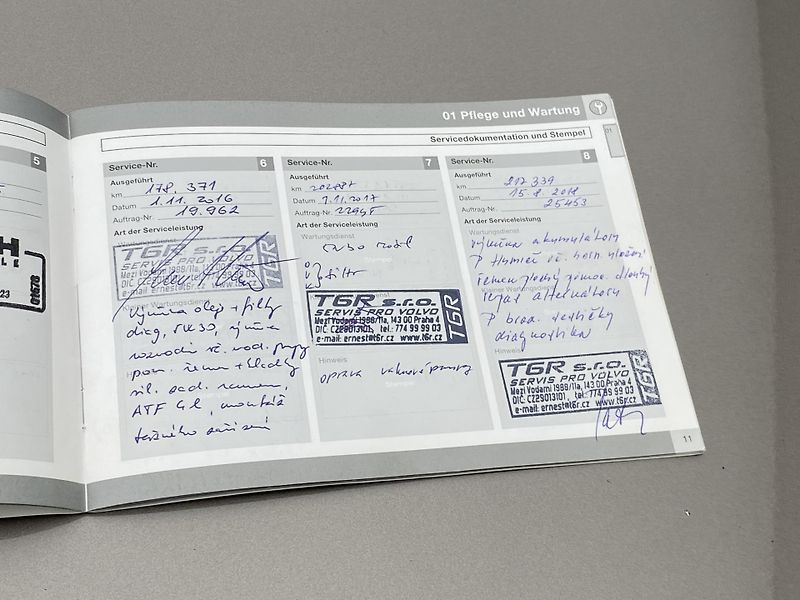 01 Pflege und Wartung
Servicedokumentation und Stempel
01
5
H
LE
23
01678
Service-Nr. 6
Ausgeführt
km 178. 371
Datum 1.11. 2016
Auftrag-Nr. 19.962
Art der Serviceleistung
Wartungsdienst
T6R s.r.o.
SERVIS PRO VOLVO
Mezi Vodami 1988/11a, 143 00 Praha 4
DIČ: CZ29013101, tel.: 774 89 99 03
e-mail: ernest@t6r.cz www.t6r.cz
T6R
Výměna olej + filtry
diag, 5W30, výměna
rozvodů vč. vod. pumpy
pom. řemen + kladky
sil. zad. ramen,
ATF 4l, montáž
tažného zařízení
Service-Nr. 7
Ausgeführt
km
Datum 7.11.2017
Auftrag-Nr.
Art der Serviceleistung
Wartungsdienst
filtr
T6R s.r.o.
SERVIS PRO VOLVO
Mezi Vodami 1988/11a, 143 00 Praha 4
DIČ: CZ29013101, tel.: 774 89 99 03
e-mail: ernest@t6r.cz www.t6r.cz
T6R
Hinweis
oprava vakuové pumpy
Stempel
Service-Nr. 8
Ausgeführt
km 217.339
Datum 15. 8. 2018
Auftrag-Nr. 25453
Art der Serviceleistung
Wartungsdienst
výměna akumulátoru
řemen
alternátoru
diagnostika
Hinweis
T6R s.r.o.
SERVIS PRO VOLVO
Mezi Vodami 1988/11a, 143 00 Praha 4
DIČ: CZ29013101, tel.: 774 89 99 03
e-mail: ernest@t6r.cz www.t6r.cz
T6R
11